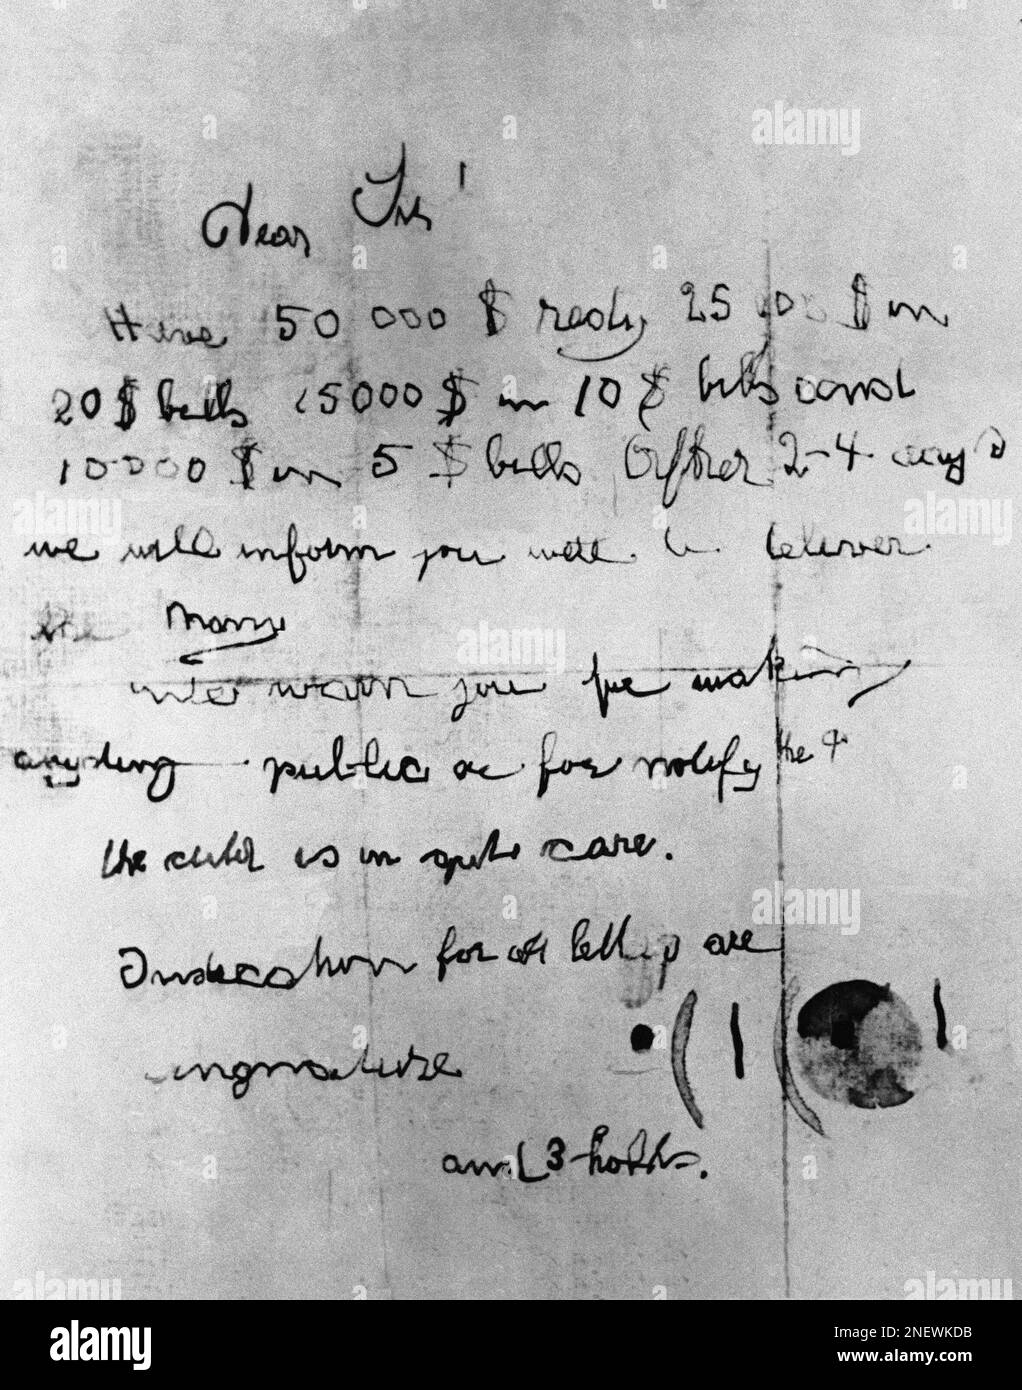 Dear Sir!
Have 50 000 $ redy 25 000 $ in
20 $ bills 15000 $ in 10 $ bills and
10000 $ in 5 $ bills After 2-4 days
we will inform you were to deliver
the Mony
We warn you for making
anyding public or for notify the
the child is in gute care.
Indication for all letters are
singnature
and 3 holds.
alamy
Image ID: 2NEWKDB
www.alamy.com